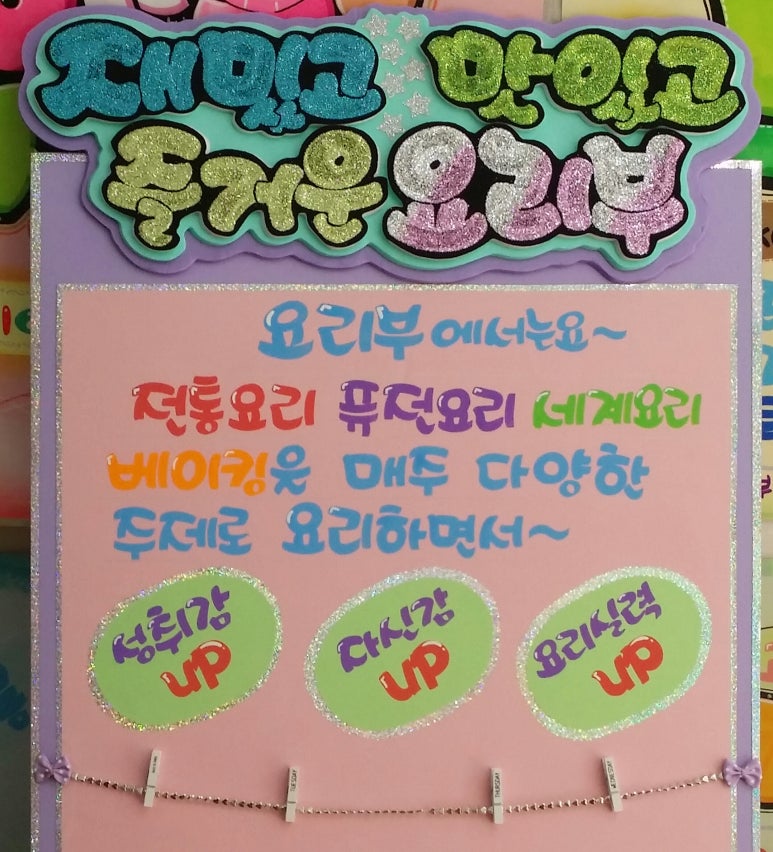 재밌고 맛있고
즐거운 요리부
요리부에서는요~
전통요리 퓨전요리 세계요리
베이킹웃 매주 다양한
주제로 요리하면서~
성취감
UP
자신감
UP
요리실력
UP
TUESDAY
THURSDAY
WEDNESDAY